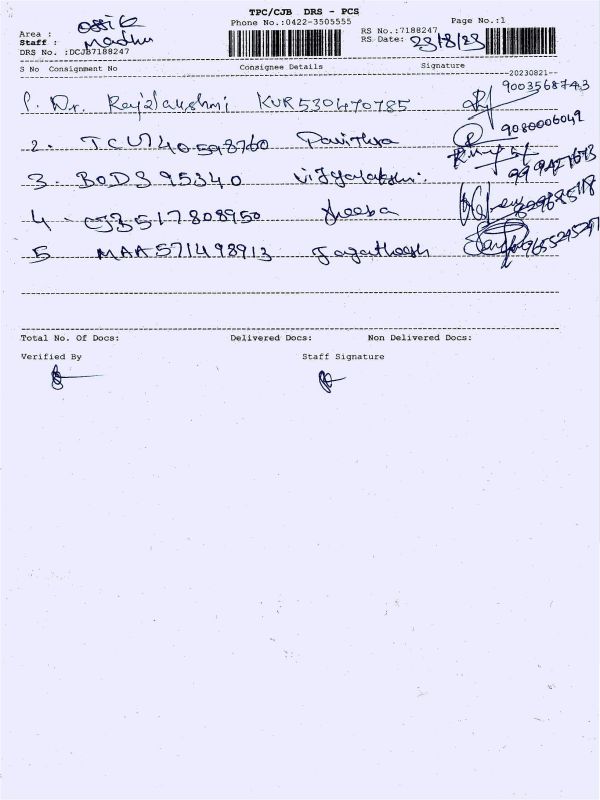 TPC/CJB DRS - PCS
Phone No.:0422-3505555
Page No.:1
Area :
Staff : Madhu
DRS No. :DCJB7188247
RS No.:7188247
RS Date: 23/8/23
S No Consignment No Consignee Details Signature
--20230821--
1. Dr. Rajalakshmi KUR530470785 9003568743
2. TCU740598760 Pavithra 9080006042
3. BODS95340 Vijyalakshmi
4. CJB517808950 Sheeba
5 MAA571498913 Jayanthosh
Total No. Of Docs: Delivered Docs: Non Delivered Docs:
Verified By Staff Signature